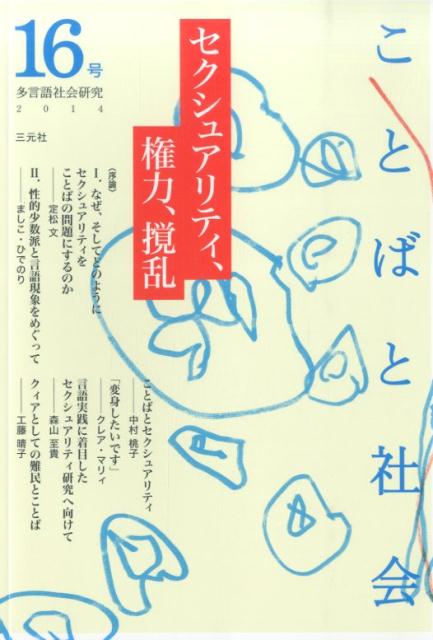 ことばと社会
16号
多言語社会研究
2014
三元社
セクシュアリティ、
権力、撹乱
〈序論〉
Ⅰ．なぜ、そしてどのように
セクシュアリティを
ことばの問題にするのか
――定松 文
Ⅱ．性的少数派と言語現象をめぐって
――ましこ・ひでのり
ことばとセクシュアリティ
――中村 桃子
「変身したいです」
――クレア・マリィ
言語実践に着目した
セクシュアリティ研究へ向けて
――森山 至貴
クィアとしての難民とことば
――工藤 晴子